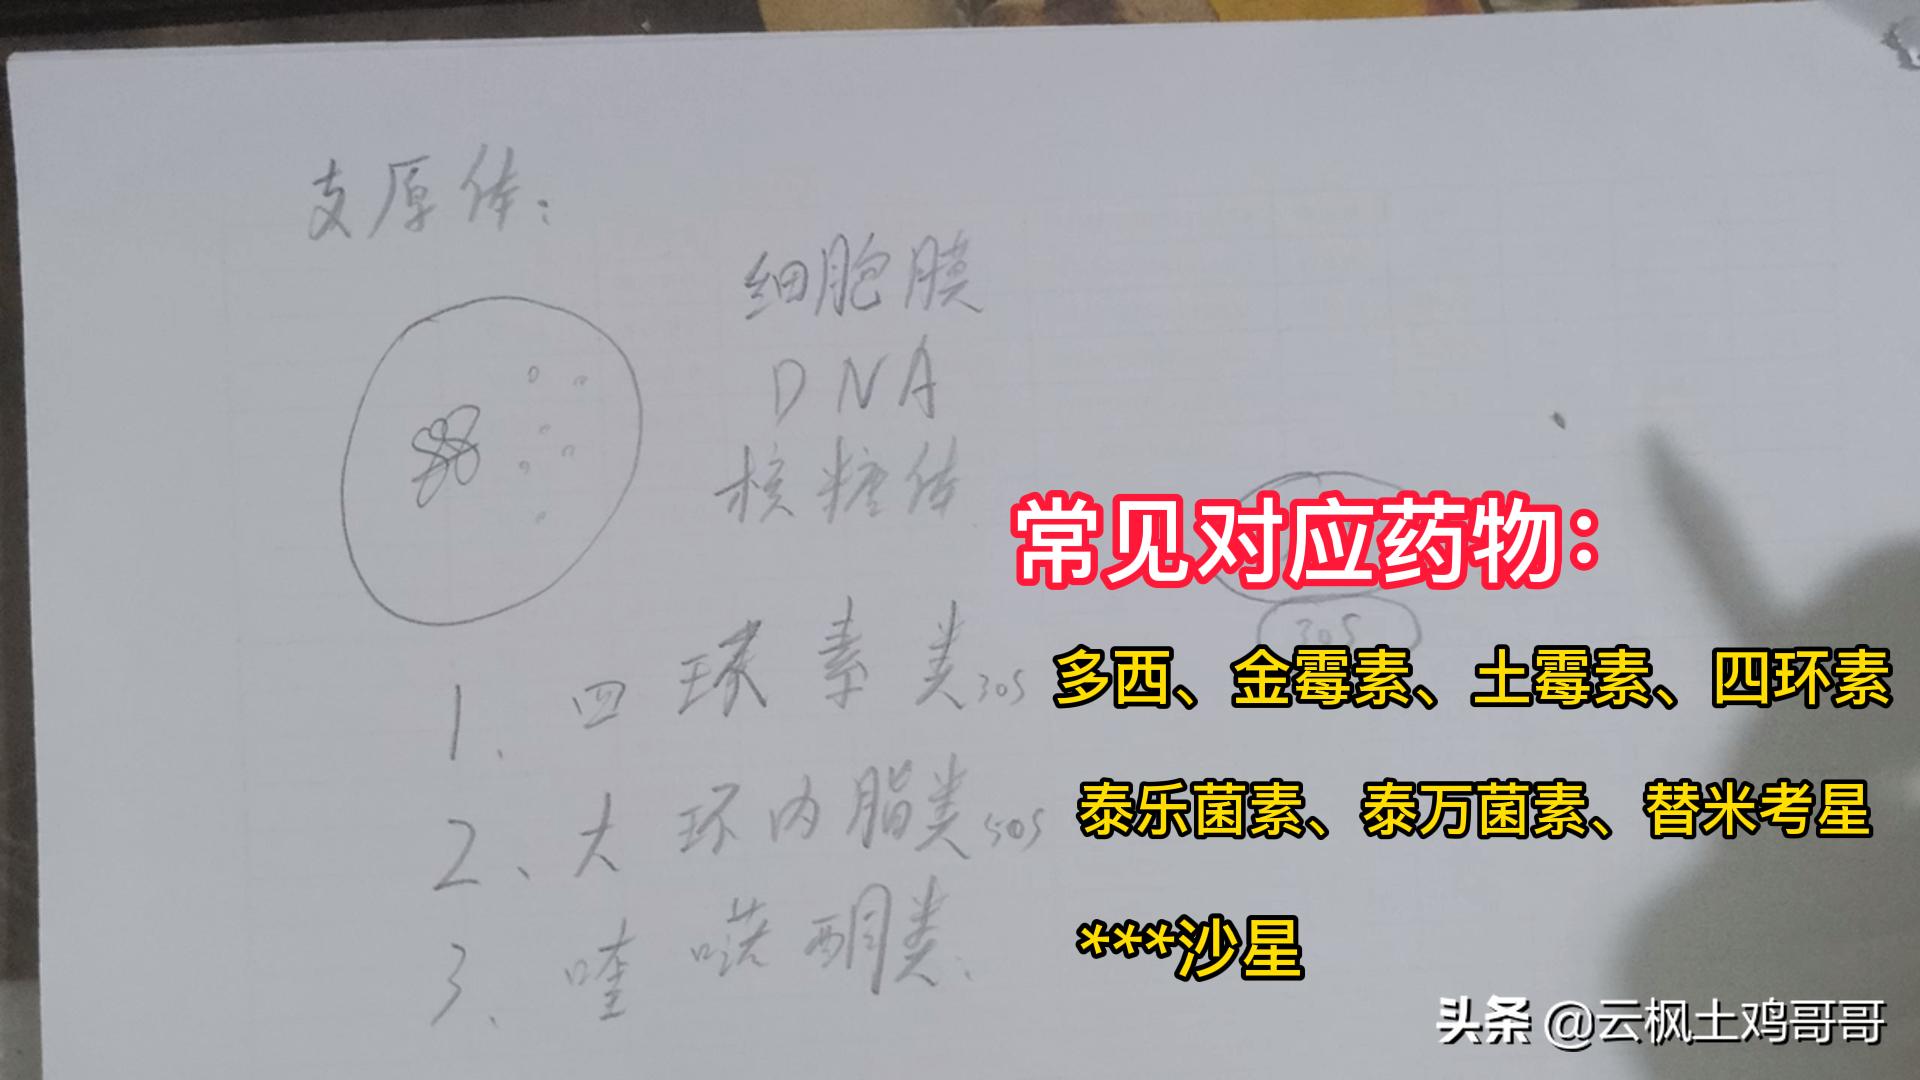 支原体：
细胞膜
DNA
核糖体
常见对应药物：
30S
1、四环素类30S 多西、金霉素、土霉素、四环素
2、大环内脂类50S 泰乐菌素、泰万菌素、替米考星
3、喹喏酮类. ***沙星
头条 @云枫土鸡哥哥